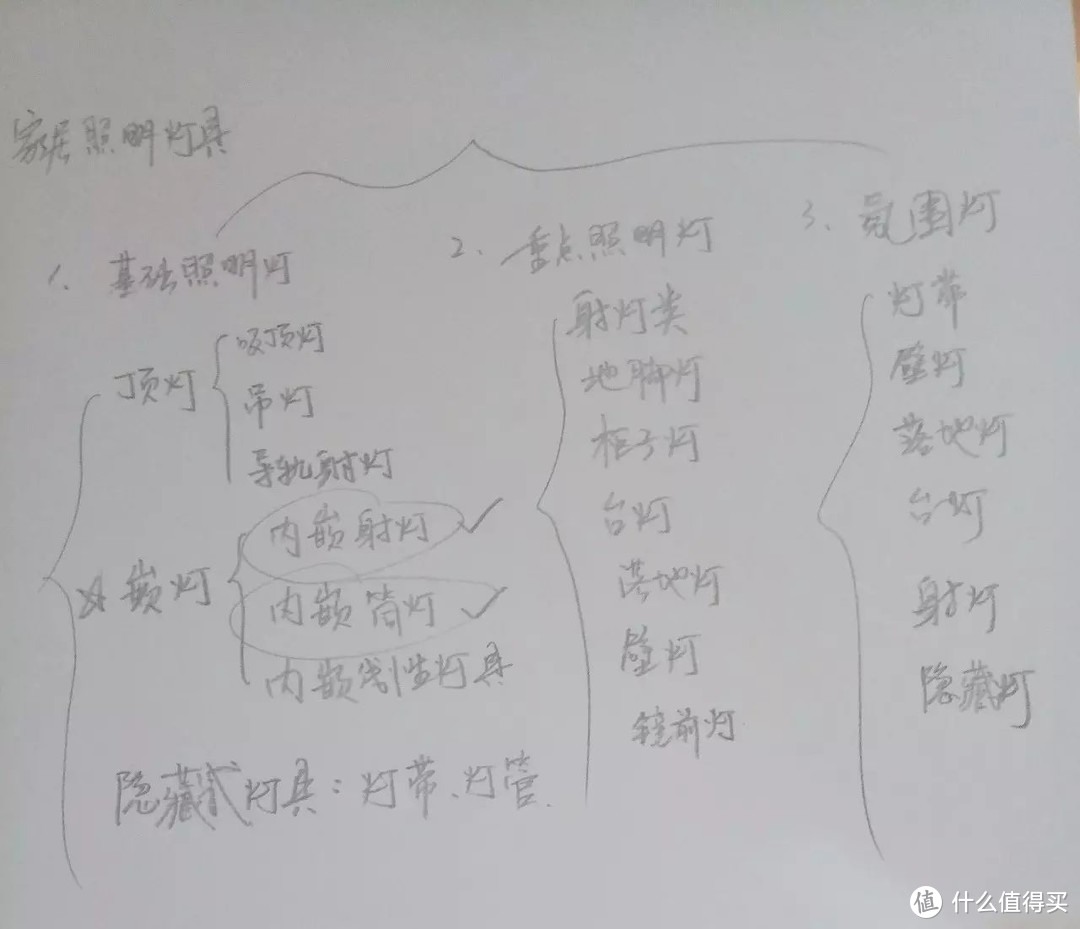 家居照明灯具
1. 基础照明灯
顶灯
吸顶灯
吊灯
导轨射灯
嵌灯
内嵌射灯 ✓
内嵌筒灯 ✓
内嵌线性灯具
隐藏式灯具:灯带、灯管
2、重点照明灯
射灯类
地脚灯
柜子灯
台灯
落地灯
壁灯
镜前灯
3、氛围灯
灯带
壁灯
落地灯
台灯
射灯
隐藏灯
值 什么值得买